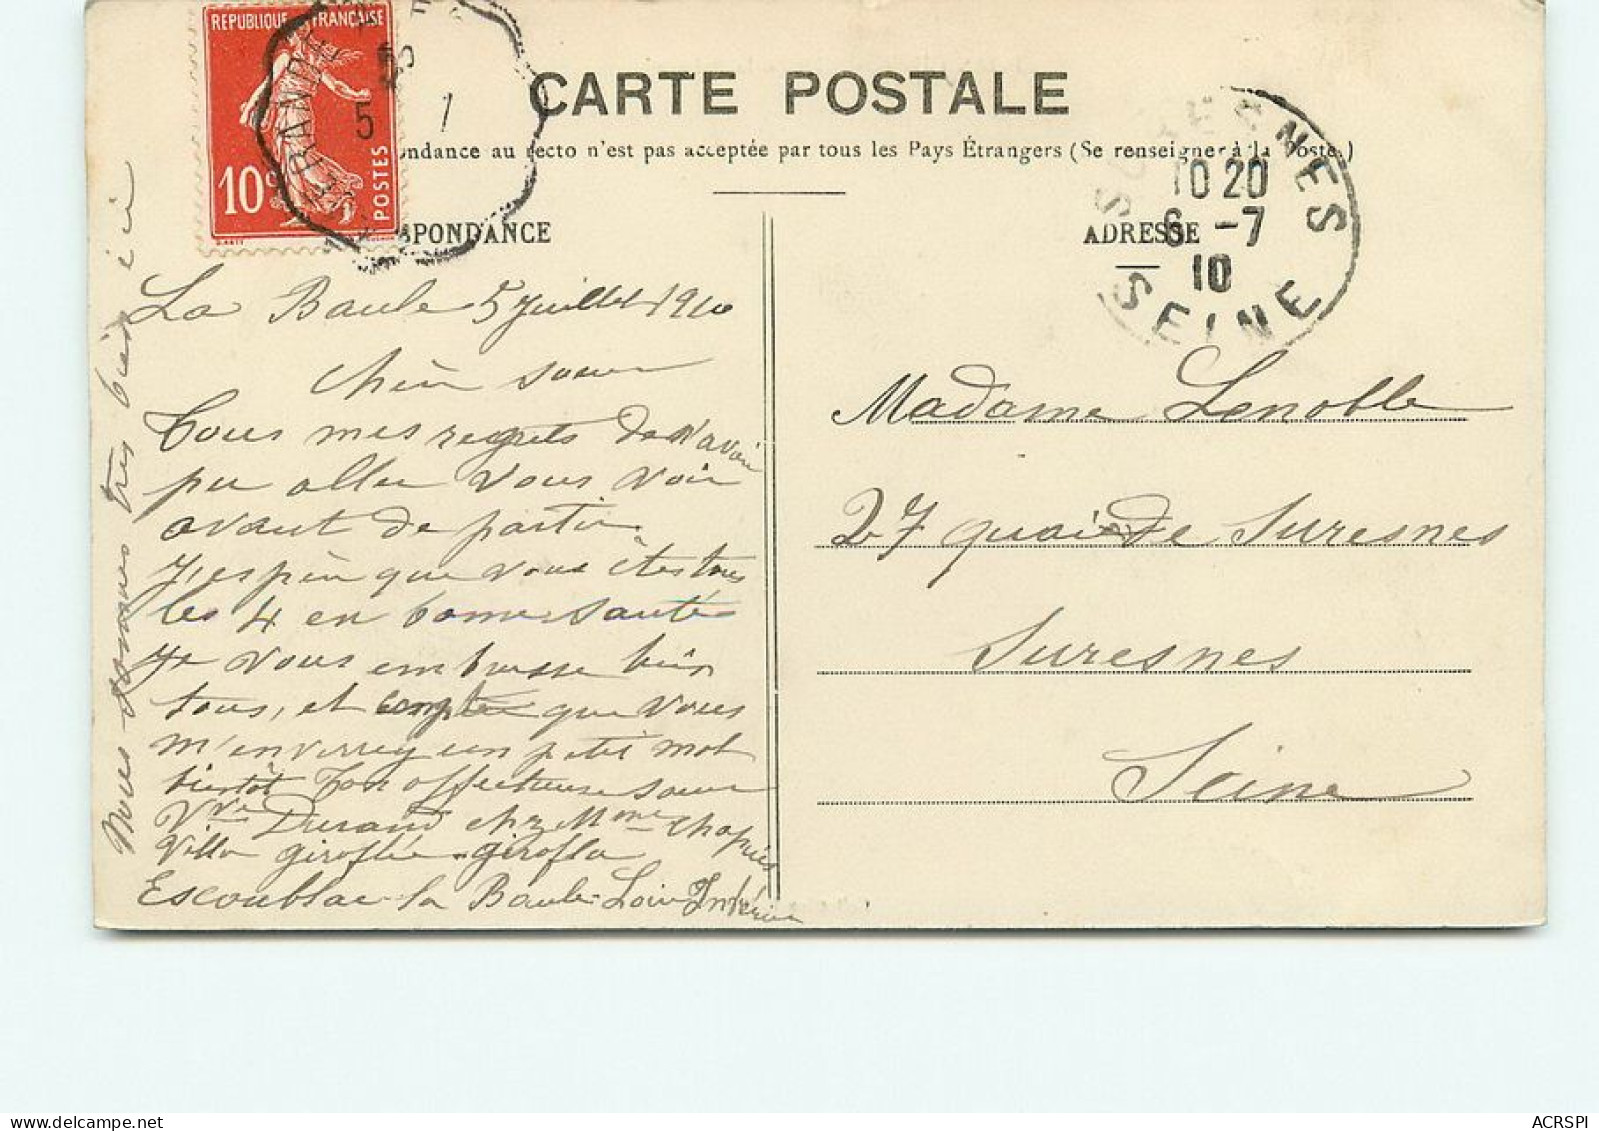 REPUBLIQUE FRANÇAISE
10c
POSTES
5
1
CARTE POSTALE
ondance au recto n'est pas acceptée par tous les Pays Étrangers (Se renseigner à la Poste.)
SPONDANCE
ADRESSE
SURESNES
10 20
6 -7
10
SEINE
La Baule 5 Juillet 1910
Chèr soeur
Tous mes regrets de n'avoir
pu aller vous voir
avant de partir.
J'espèr que vous êtes tous
les 4 en bonne santés
Je vous embrasse bien
tous, et compte que vous
m'enverrez un petit mot
bientôt Ton affectueuse soeur
Vve Durand chez Mme Chapuis
Villa giroflée-girofla
Escoublac-la Baule-Loire Inférieure
Nous sommes très bien ici
Madame Lenoble
27 quai de Suresnes
Suresnes
Seine
ACRSPI